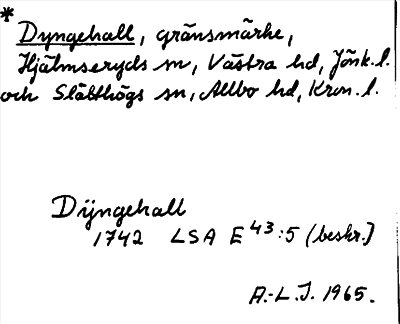 *
Dyngehall, gränsmärke,
Hjälmseryds sn, Västra hd, Jönk. l.
och Slätthögs sn, Allbo hd, Kron. l.
Dÿngehall
1742 LSA E 43:5 (beskr.)
A.-L. J. 1965.